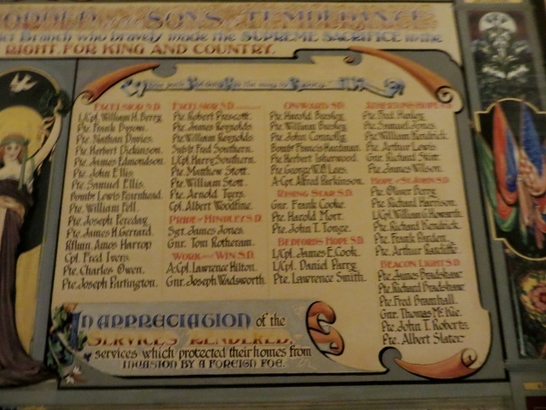 SONS OF TEMPERANCE
Branch who bravely made the SUPREME SACRIFICE in the
RIGHT, FOR KING AND COUNTRY.
EXCELSIOR S.D.
L/Cpl. William H. Berry.
Pte. Frank Byrom.
Pte. Nathan Davies.
Pte. Herbert Dickinson.
Pte. James Edmondson.
Pte. John Ellis.
Pte. Samuel Ellis.
Bombr Lewis Fearnhead.
Pte. William Fell.
Pte. Joseph Fereday.
Pte. James H. Gerrard.
Amos Harrop
Cpl. Fred Ivens.
Pte. Charles Owen.
Pte. Joseph Partington.
EXCELSIOR S.D.
Pte. Robert Prescott.
Pte. James Reynolds.
Pte. William Reynolds.
Fred Southern.
L/Cpl. Harry Southern.
Pte. Matthew Stott.
Pte. William Stott.
Pte. Arnold Tyers.
Cpl. Albert Woodfine.
PRIDE OF HINDLEY S.D.
Sgt. James Jones.
Gnr. Tom Rotheram.
WORK AND WIN S.D.
A/Cpl. Lawrence Hilton.
Gnr. Joseph Wadsworth.
ONWARD S.D.
Pte. Harold Buxley.
Pte. William Buxley
Pte. John Connolly.
Bombr Francis Hardman.
Pte. Herbert Isherwood.
Pte. George W. Lees.
A/Cpl. Alfred Parkinson.
RISING STAR S.D.
Gnr. Frank Cooke.
Pte. Harold Morr.
Pte. John T. Tonge.
BEDFORDS HOPE S.D.
L/Cpl. James E. Cook.
L/Cpl. Daniel Parry
Pte. Lawrence Smith.
HOPE S.D.
Pte. Paul Hanley.
Pte. Samuel Jones.
Pte. William Kendrick.
Pte. Arthur Lewis.
Gnr. Richard Stirr.
Pte. James Wilson.
S.D.
Pte. Oliver Berry.
Pte. Richard Harrison.
L/Cpl. William Howarth.
Pte. Richard Kendrick.
Pte. Frank Varden.
Pte. Arthur Radcliffe.
BEACON LIGHT S.D.
Pte. James Bradshaw.
Pte. Richard Bradshaw.
Pte. Fred Bramhall.
Gnr. Thomas Mc Hie.
Pte. John T. Roberts.
Pte. Albert Slater.
IN APPRECIATION of the
SERVICES RENDERED,
services which protected their homes from
INVASION BY A FOREIGN FOE.